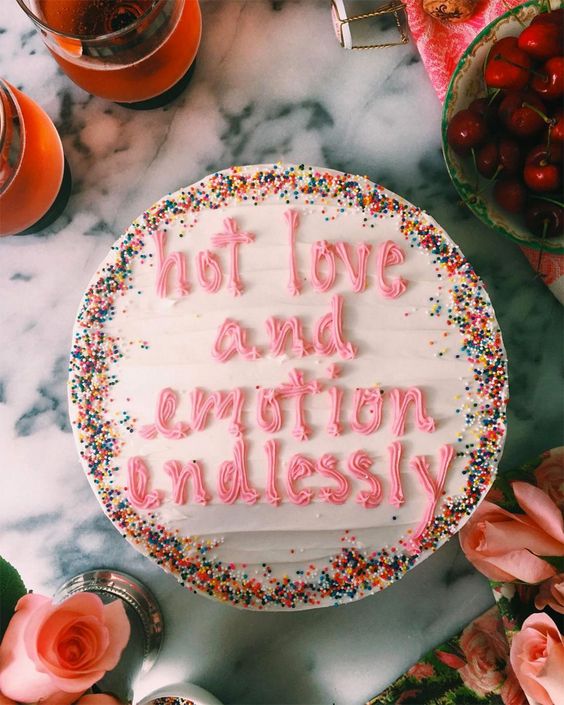 hot love
and
emotion
endlessly